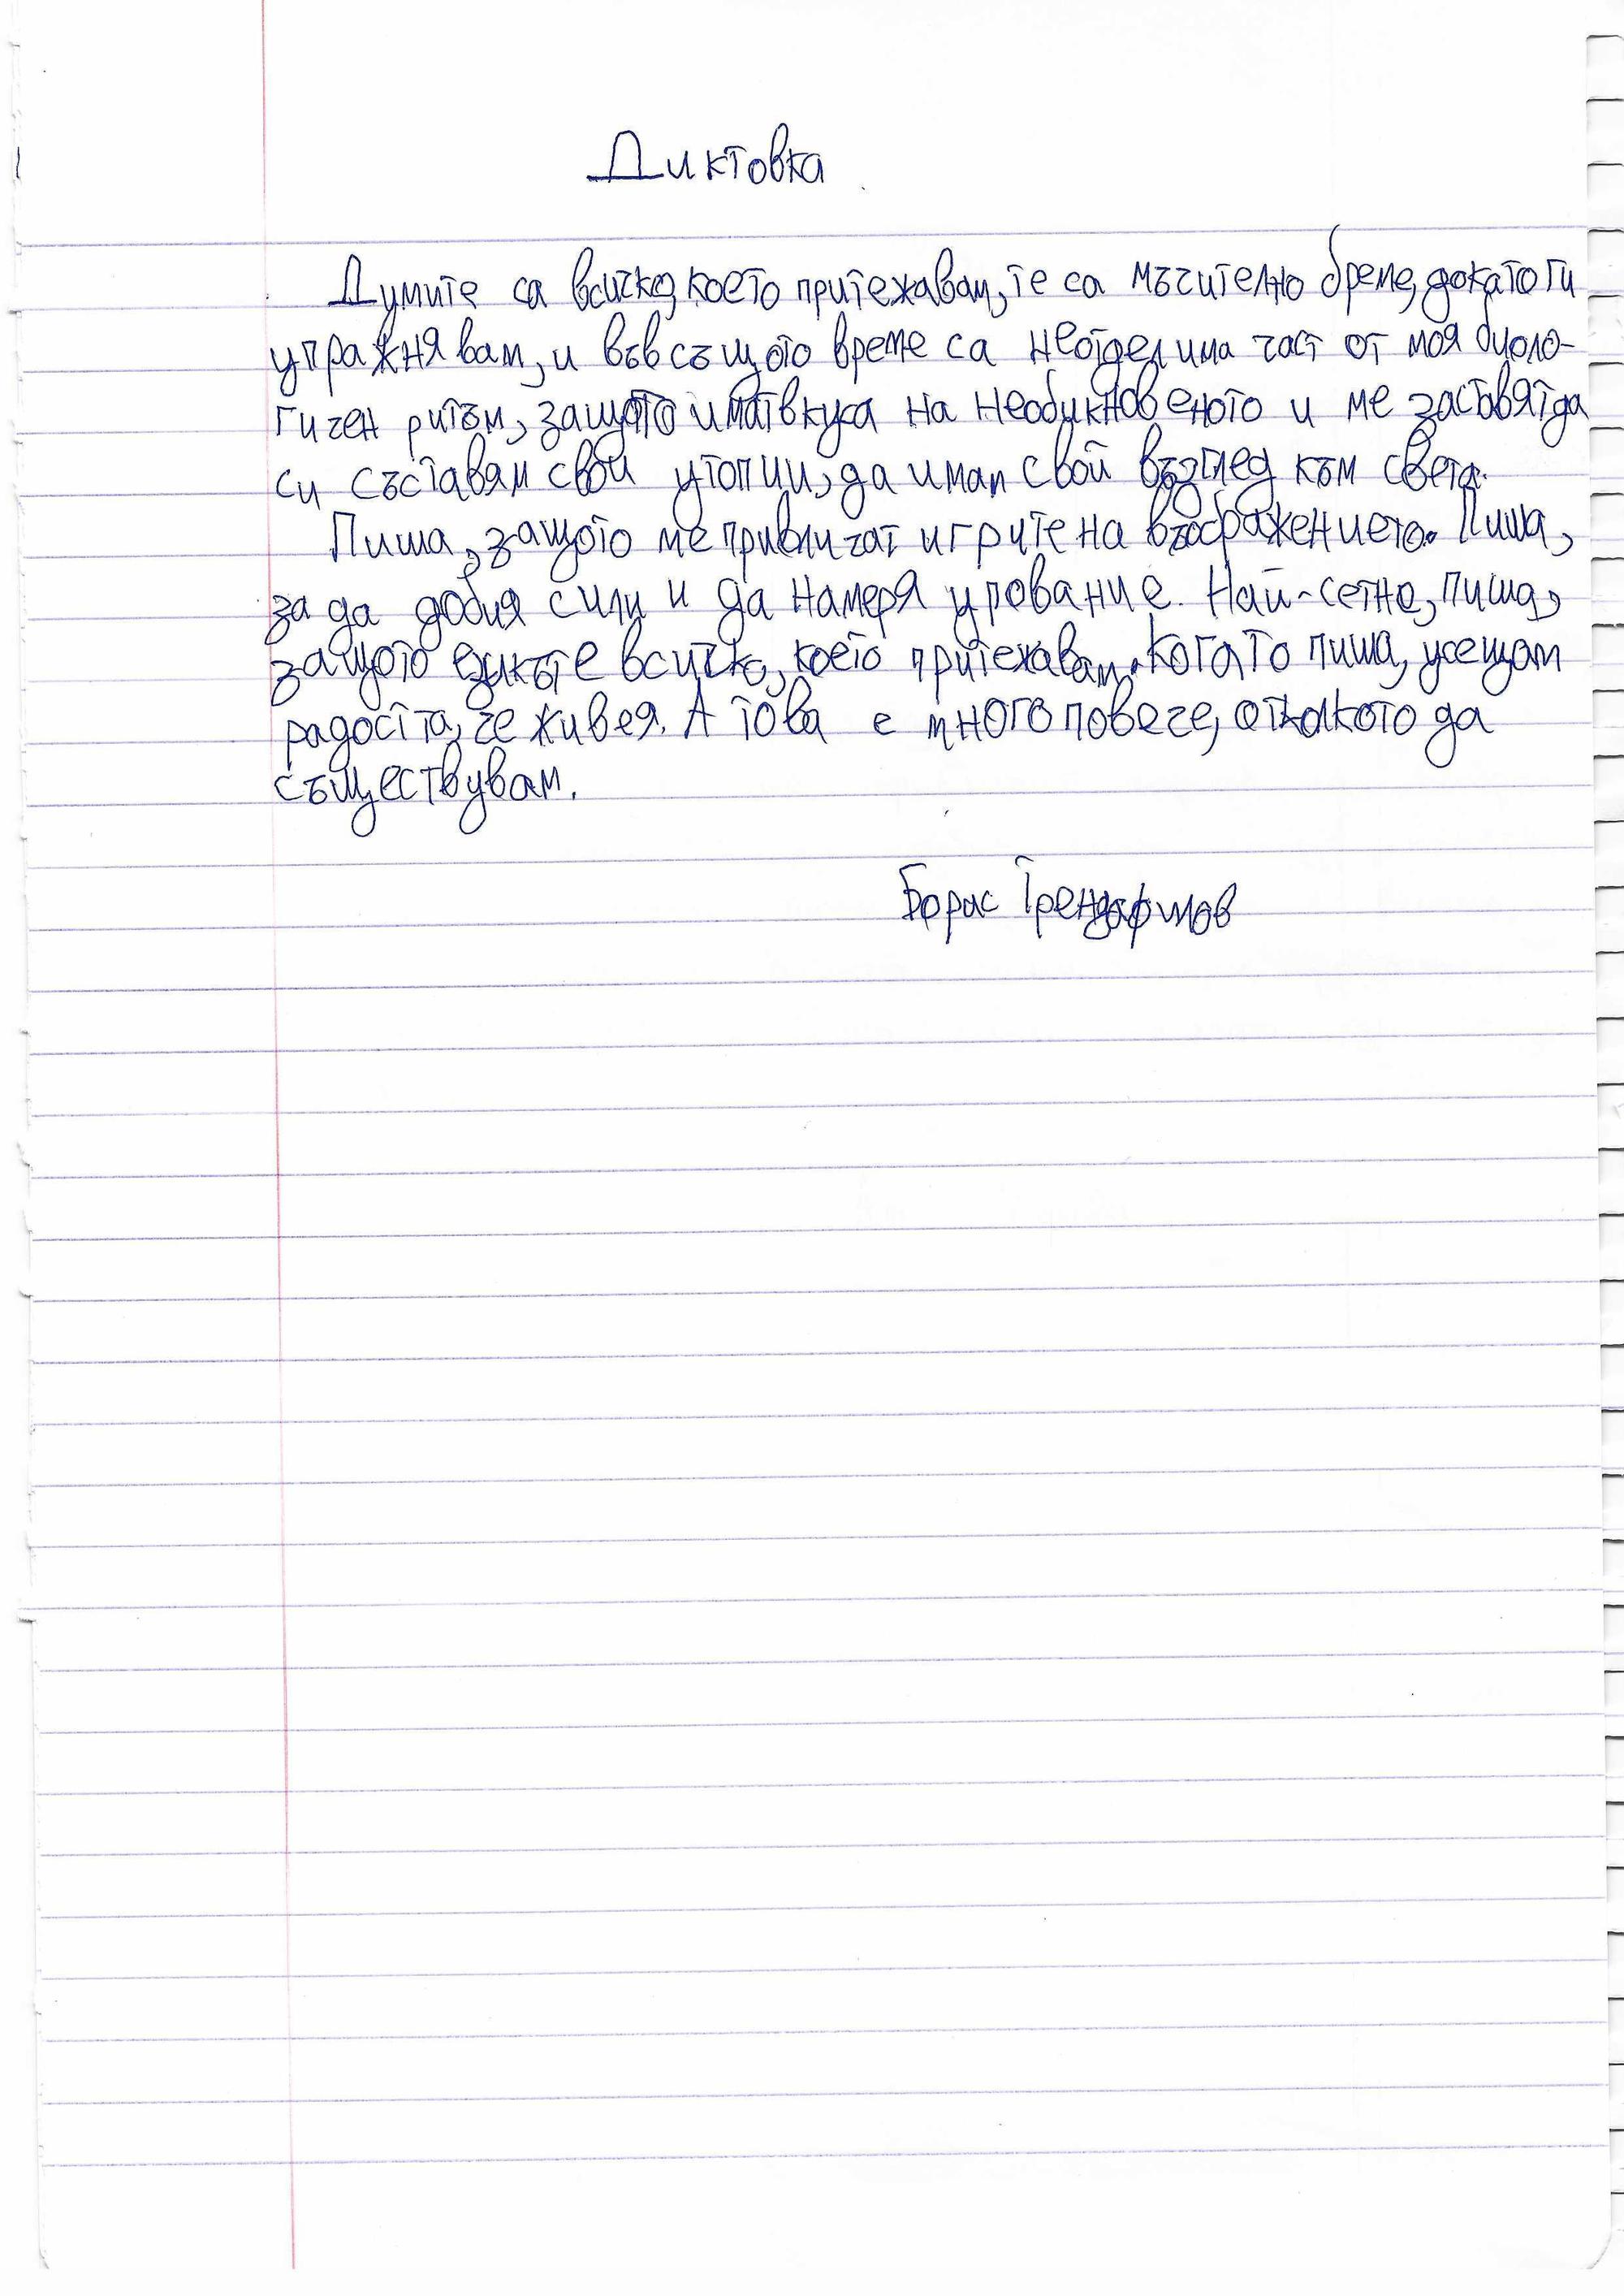 Диктовка
Думите са всичко, което притежавам, те са мъчително бреме, докато ги
упражнявам, и във същото време са неотделима част от моя биоло-
гичен ритъм, защото имат вкуса на необикновеното и ме заставят да
си съставям свои утопии, да имам свой възглед към света.
Пиша, защото ме привличат игрите на въображението. Пиша,
за да добия сили и да намеря упование. Най-сетне, пиша,
защото езикът е всичко, което притежавам. Когато пиша, усещам
радостта, че живея. А това е много повече, отколкото да
съществувам.
Борис Трендафилов